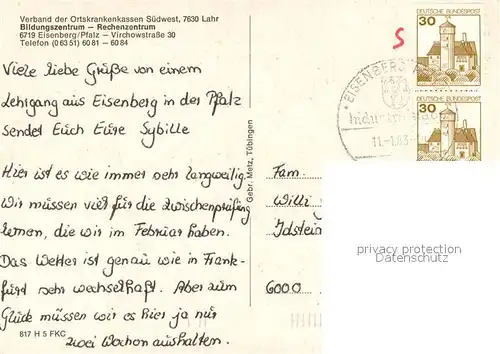 Verband der Ortskrankenkassen Südwest, 7630 Lahr
Bildungszentrum – Rechenzentrum
6719 Eisenberg/Pfalz – Virchowstraße 30
Telefon (0 63 51) 60 81 – 60 84
Viele liebe Grüße von einem
Lehrgang aus Eisenberg in der Pfalz
sendet Euch Eure Sybille
Hier ist es wie immer sehr langweilig.
Wir müssen viel für die Zwischenprüfung
lernen, die wir im Februar haben.
Das Wetter ist genau wie in Frank-
furt sehr wechselhaft. Aber zum
Glück müssen wir es hier ja nur
zwei Wochen aushalten.
817 H 5 FKC
Gebr. Metz, Tübingen
S
DEUTSCHE BUNDESPOST
30
DEUTSCHE BUNDESPOST
30
EISENBERG
11.-1.83-
Fam.
Willi
Idstein
6000
privacy protection
Datenschutz